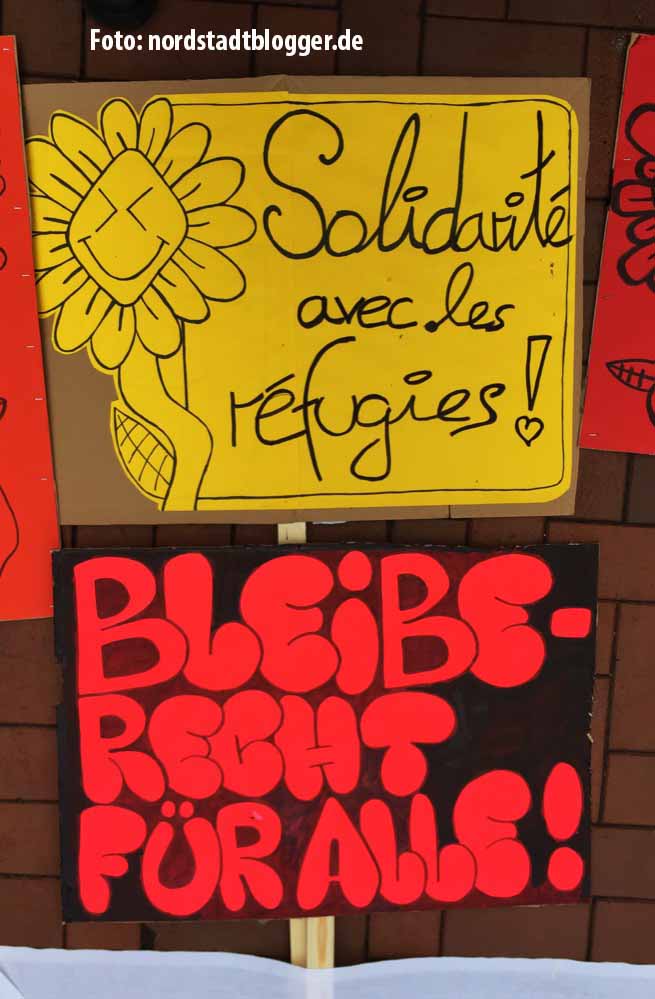 Foto: nordstadtblogger.de
Solidarité
avec les
réfugies!
BLEIBE-
RECHT
FÜR ALLE!